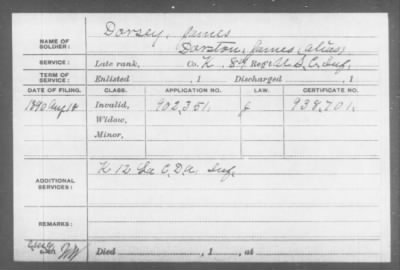 Dorsey, James
NAME OF SOLDIER:
Dorston, James (alias)
SERVICE: Late rank, Co. K, 8th Reg't U.S.C. Inf.
TERM OF SERVICE: Enlisted , 1 Discharged , 1
DATE OF FILING. CLASS. APPLICATION NO. LAW. CERTIFICATE NO.
1890 Aug 18 Invalid, 902,351. J 938,701.
Widow,
Minor,
K 12 La C.D.A. Inf.
ADDITIONAL SERVICES:
REMARKS:
Died , 1 , at